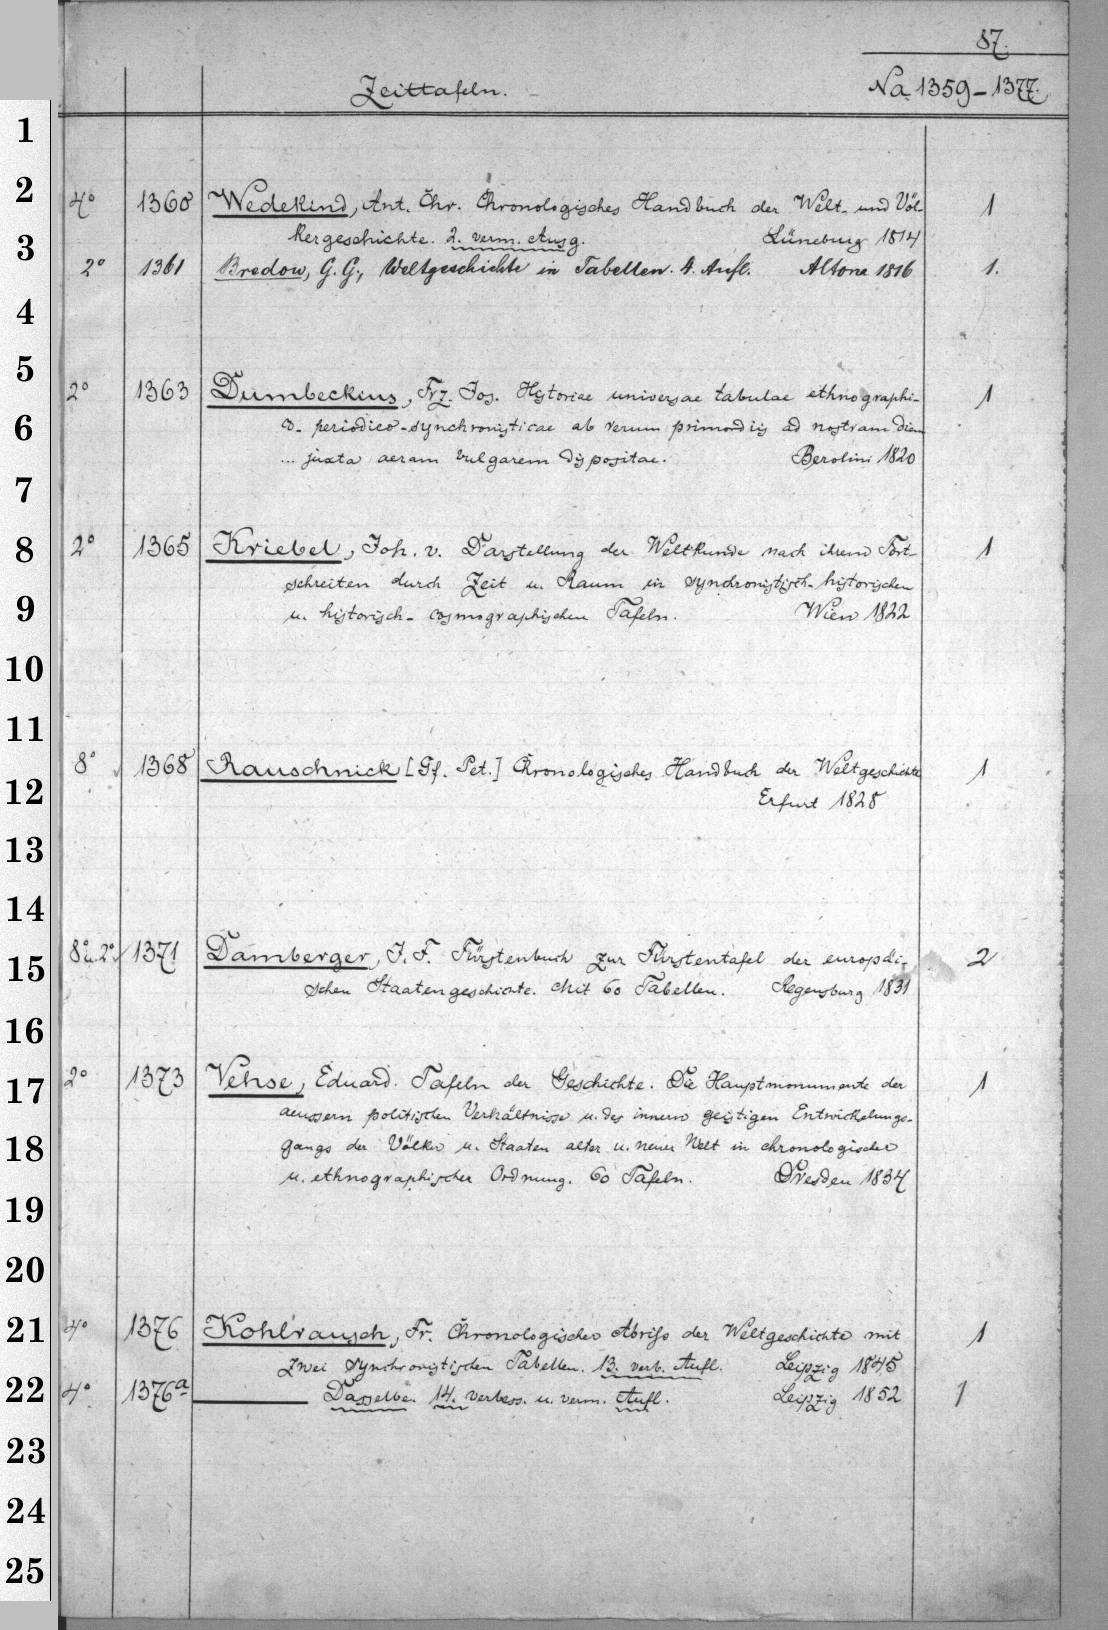 87.
Zeittafeln.
Na 1359-1377.
1
2
4° 1360 Wedekind, Ant. Chr. Chronologisches Handbuch der Welt- und Völ- 1
kergeschichte. 2. verm. Ausg. Lüneburg 1814
3
2° 1361 Bredow, G. G., Weltgeschichte in Tabellen. 4. Aufl. Altona 1816 1.
4
5
2° 1363 Dumbeckius, Frz. Jos. Historiae universae tabulae ethnographi- 1
6
periodico-synchronisticae ab rerum primordiis ad nostram diem
... juxta aeram vulgarem dispositae. Berolini 1820
7
8
2° 1365 Kriebel, Joh. v. Darstellung der Weltkunde nach ihrem Fort- 1
schreiten durch Zeit u. Raum in synchronistisch-historischen
9
u. historisch-cosmographischen Tafeln. Wien 1822
10
11
8° 1368 Rauschnick [Gf. Pet.] Chronologisches Handbuch der Weltgeschichte 1
12
Erfurt 1828
13
14
8° u. 2° 1371 Damberger, J. F. Fürstenbuch zur Fürstentafel der europäi- 2
15
schen Staatengeschichte. Mit 60 Tabellen. Regensburg 1831
16
2° 1373 Vehse, Eduard. Tafeln der Geschichte. Die Hauptmonumente der 1
17
aeussern politischen Verhältnisse u. des innern geistigen Entwickelungs-
18
gangs der Völker u. Staaten alter u. neuer Welt in chronologischer
u. ethnographischer Ordnung. 60 Tafeln. Dresden 1834
19
20
21
4° 1376 Kohlrausch, Fr. Chronologischer Abriss der Weltgeschichte mit 1
zwei synchronistischen Tabellen. 13. verb. Aufl. Leipzig 1845
22
4° 1376a Dasselbe. 14. verbess. u. verm. Aufl. Leipzig 1852 1
23
24
25